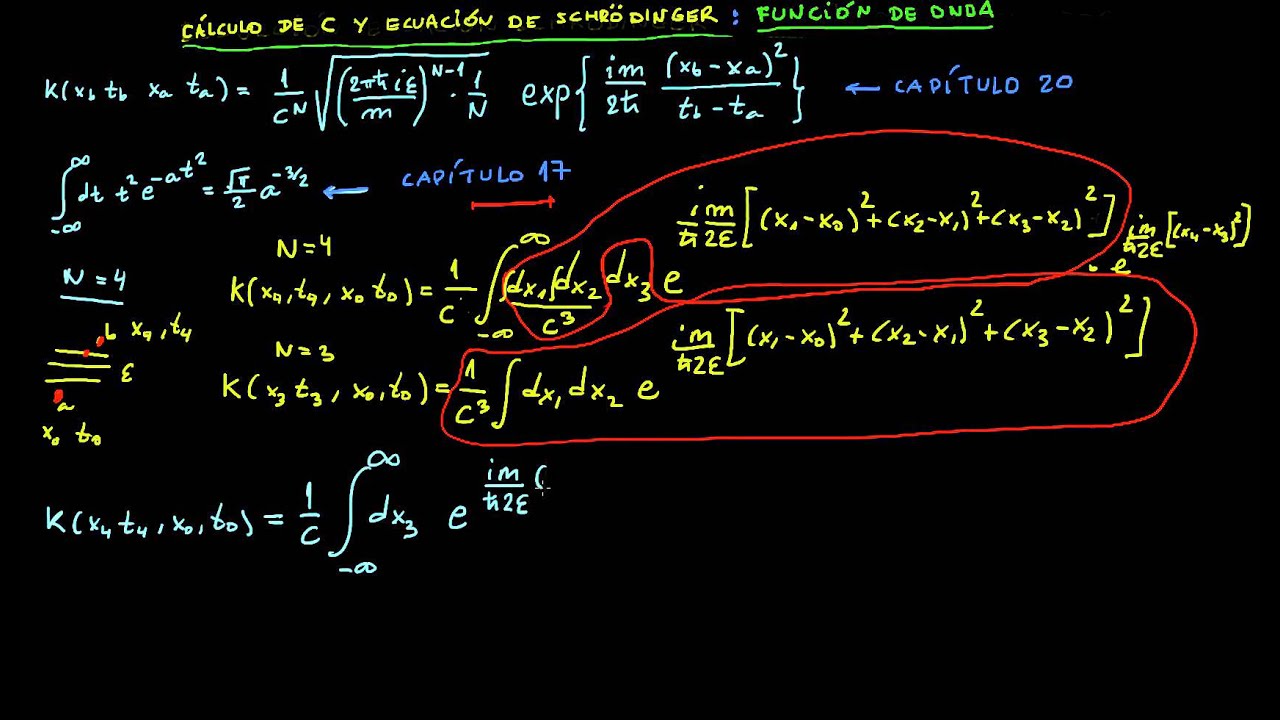 CÁLCULO DE C Y ECUACIÓN DE SCHRÖDINGER : FUNCIÓN DE ONDA
K(x_b t_b x_a t_a) = 1/C^N √((2πħiε/m)^(N-1) · 1/N) exp{ im/2ħ (x_b - x_a)²/(t_b - t_a) } ← CAPÍTULO 20
∫_{-∞}^{∞} dt t² e^{-at²} = √π/2 a^{-3/2} ← CAPÍTULO 17
N = 4
N = 4
K(x₄,t₄, x₀ t₀) = 1/C ∫∫_{-∞}^{∞} dx₁∫dx₂/C³ dx₃ e^{im/ħ2ε [(x₁-x₀)² + (x₂-x₁)² + (x₃-x₂)²]} · e^{im/ħ2ε [(x₄-x₃)²]}
b x₄, t₄
ε
a
x₀ t₀
N = 3
K(x₃ t₃, x₀, t₀) = 1/C³ ∫ dx₁ dx₂ e^{im/ħ2ε [(x₁-x₀)² + (x₂-x₁)² + (x₃-x₂)²]}
K(x₄ t₄, x₀, t₀) = 1/C ∫_{-∞}^{∞} dx₃ e^{im/ħ2ε (}